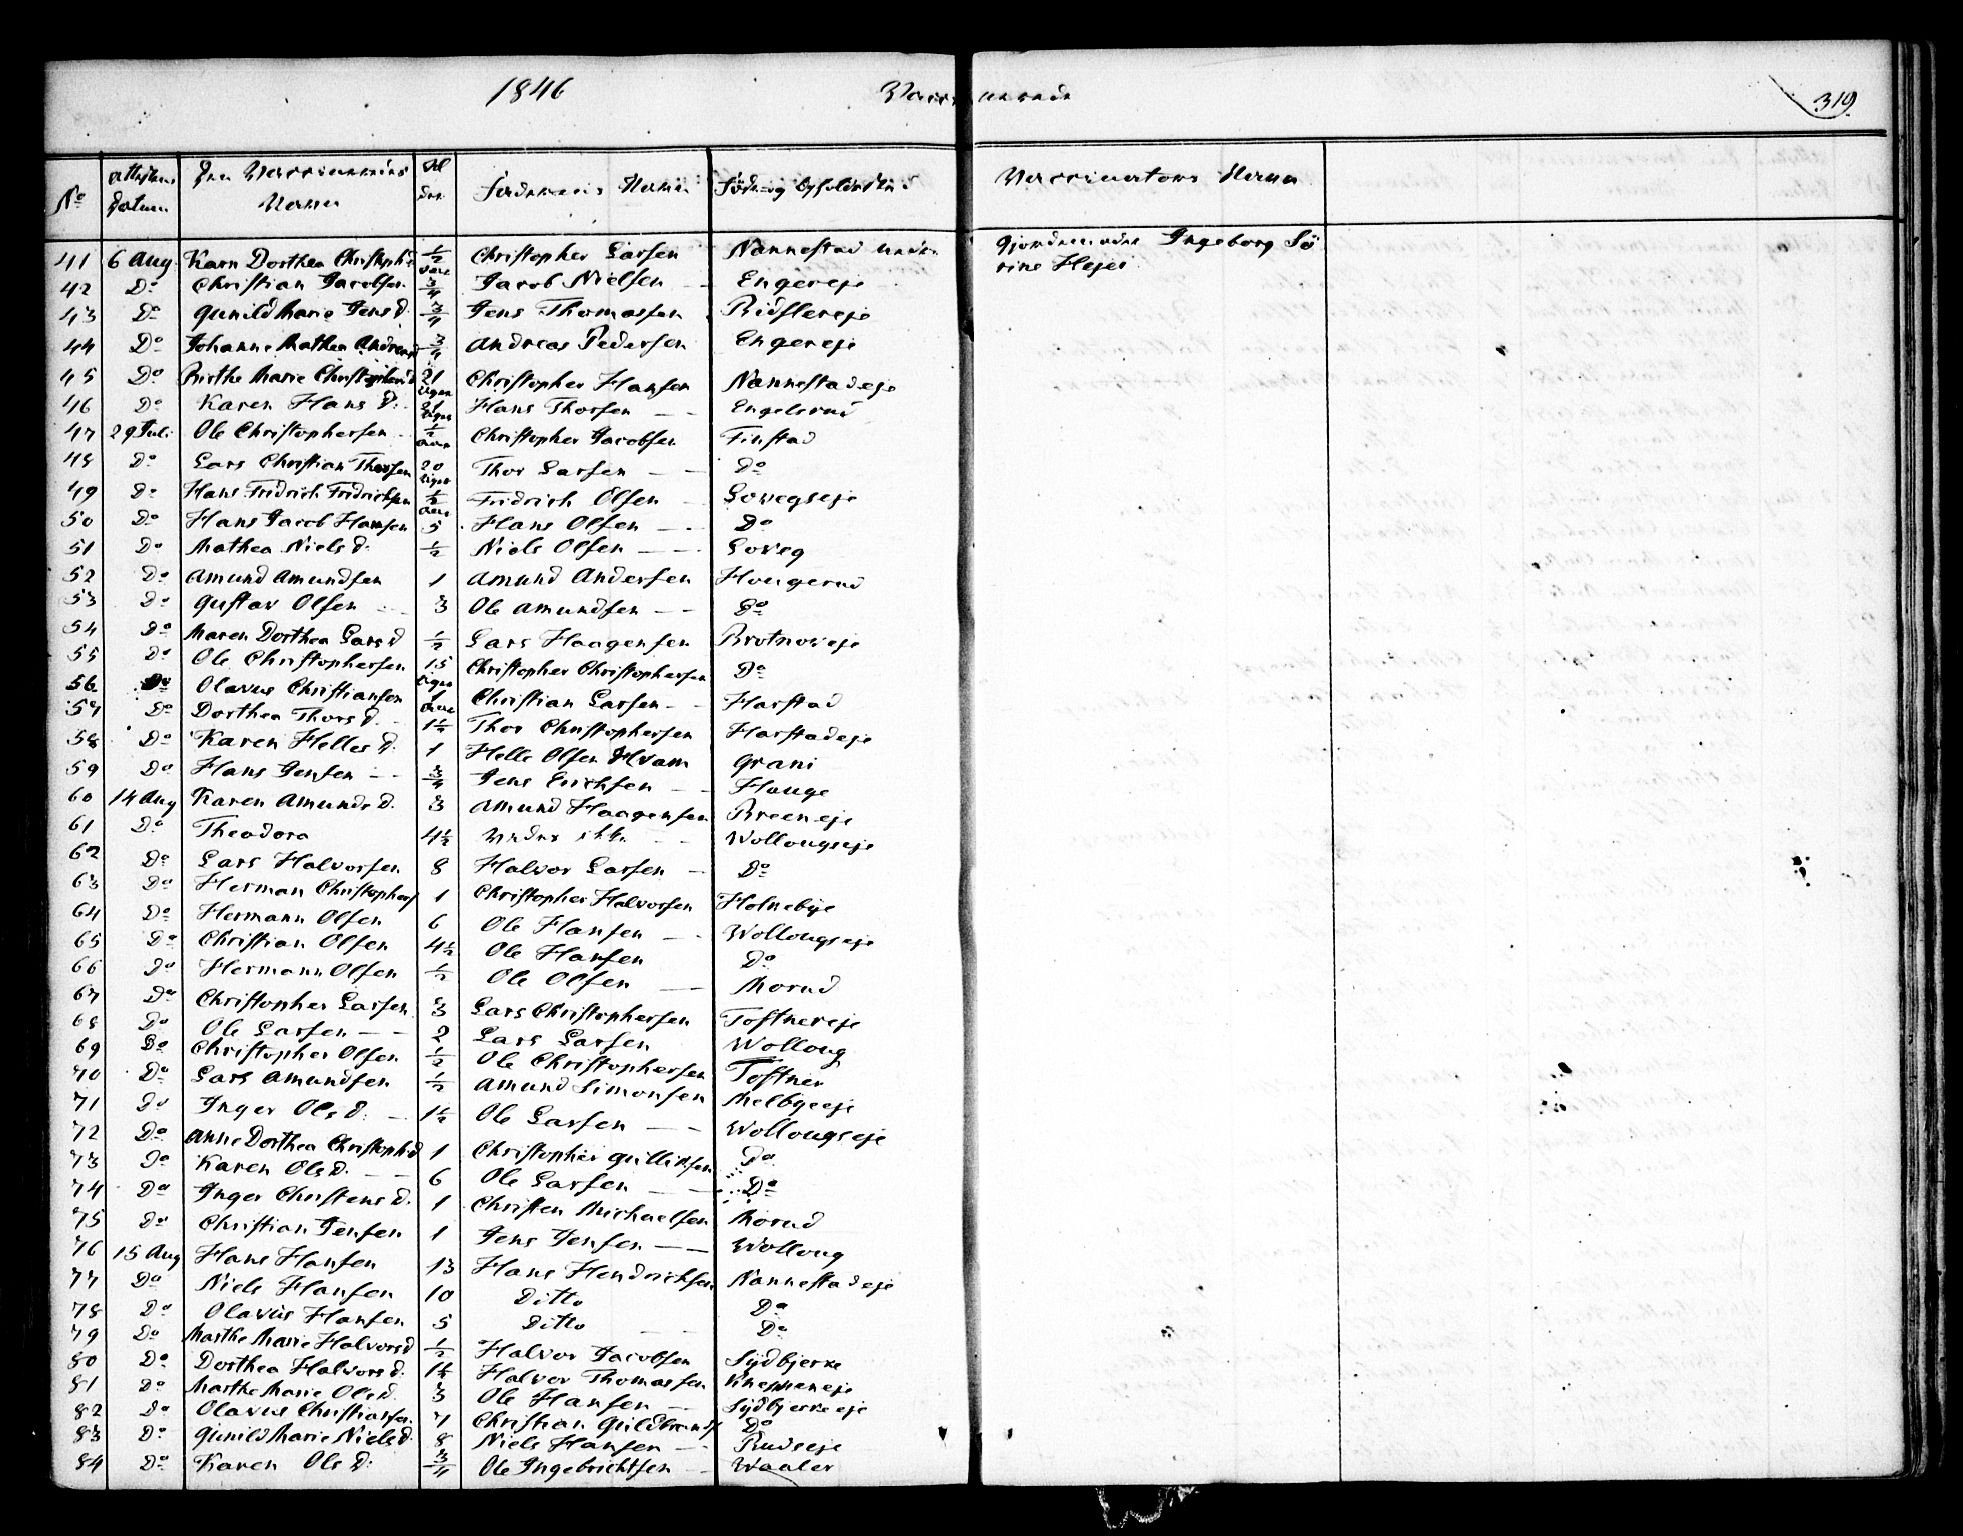 1846 Vaccinerede 319
No Attestens Datum Den Vaccineredes Navn Alder Faderens Navn Føde og Opholdssted Vaccinateurs Navn
41 6 Aug Karn Dorthea Christophd ½ Aar Christopher Larsen Nannestad Gjordemoder Ingeborg Sø
rine Hejer
42 Do Christian Jacobsen ¾ Jacob Nielsen Engereje
43 Do Gunild Marie Jens d. ¾ Jens Thomassen Ridslereje
44 Do Johanne Mathea Andreasd ¾ Andreas Pedersen Engereje
45 Do Birthe Marie Christopherd 21 Uger Christopher Hansen Nannestadeje
46 Do Karen Hans d. 21 Uger Hans Thorsen Engelsrud
47 29 Juli Ole Christophersen ½ Aar Christopher Jacobsen Finstad
48 Do Lars Christian Thorsen 20 Uger Thor Larsen Do
49 Do Hans Fridrich Fridrichsen ½ Aar Fridrich Olsen Lovegseje
50 Do Hans Jacob Hansen 5 Hans Olsen Do
51 Do Mathea Niels d. ½ Niels Olsen Loveg
52 Do Amund Amundsen 1 Amund Andersen Hougerud
53 Do Gustav Olsen 3 Ole Amundsen Do
54 Do Maren Dorthea Lars d ½ Lars Haagensen Brotnoveje
55 Do Ole Christophersen 15 Uger Christopher Christophersen Do
56 Do Olavus Christiansen 1 Aar Christian Larsen Harstad
57 Do Dorthea Thors d. 1½ Thor Christophersen Harstadeje
58 Do Karen Helles d. 1 Helle Olsen Hvam Grani
59 Do Hans Jensen ¾ Jens Erichsen Houge
60 14 Aug Karen Amunds d. 3 Amund Haagensen Breeneje
61 Do Theodora 4½ Vides ikke Wollougseje
62 Do Lars Halvorsen 8 Halvor Larsen Do
63 Do Herman Christophers 1 Christopher Halvorsen Holnebye
64 Do Hermann Olsen 6 Ole Hansen Wollougseje
65 Do Christian Olsen 4½ Ole Hansen Do
66 Do Hermann Olsen ½ Ole Olsen Morud
67 Do Christopher Larsen 3 Lars Christophersen Toftnereje
68 Do Ole Larsen 2 Lars Larsen Wolloug
69 Do Christopher Olsen ½ Ole Christophersen Toftner
70 Do Lars Amundsen ½ Amund Simonsen Melbyeeje
71 Do Inger Ols d. 1½ Ole Larsen Wollougseje
72 Do Anne Dorthea Christophd 1 Christopher Gulliksen Do
73 Do Karen Ols d. 6 Ole Larsen Do
74 Do Inger Christens d. 1 Christen Michaelsen Morud
75 Do Christian Jensen 1 Jens Jensen Wolloug
76 15 Aug Hans Hansen 13 Hans Hendrichsen Nannestadeje
77 Do Niels Hansen 10 Ditto Do
78 Do Olavus Hansen 5 Ditto Do
79 Do Marthe Marie Halvorsd ½ Halvor Jacobsen Sydbjerke
80 Do Dorthea Halvors d. 1½ Halvor Thomassen Kneppeneje
81 Do Marthe Marie Ols d. 3 Ole Hansen Sydbjerkeeje
82 Do Olavus Christiansen 7 Christian Guldbrands Do
83 Do Gunild Marie Niels d. 8 Niels Hansen Rudseje
84 Do Karen Ols d. ¾ Ole Ingebrichtsen Waaler